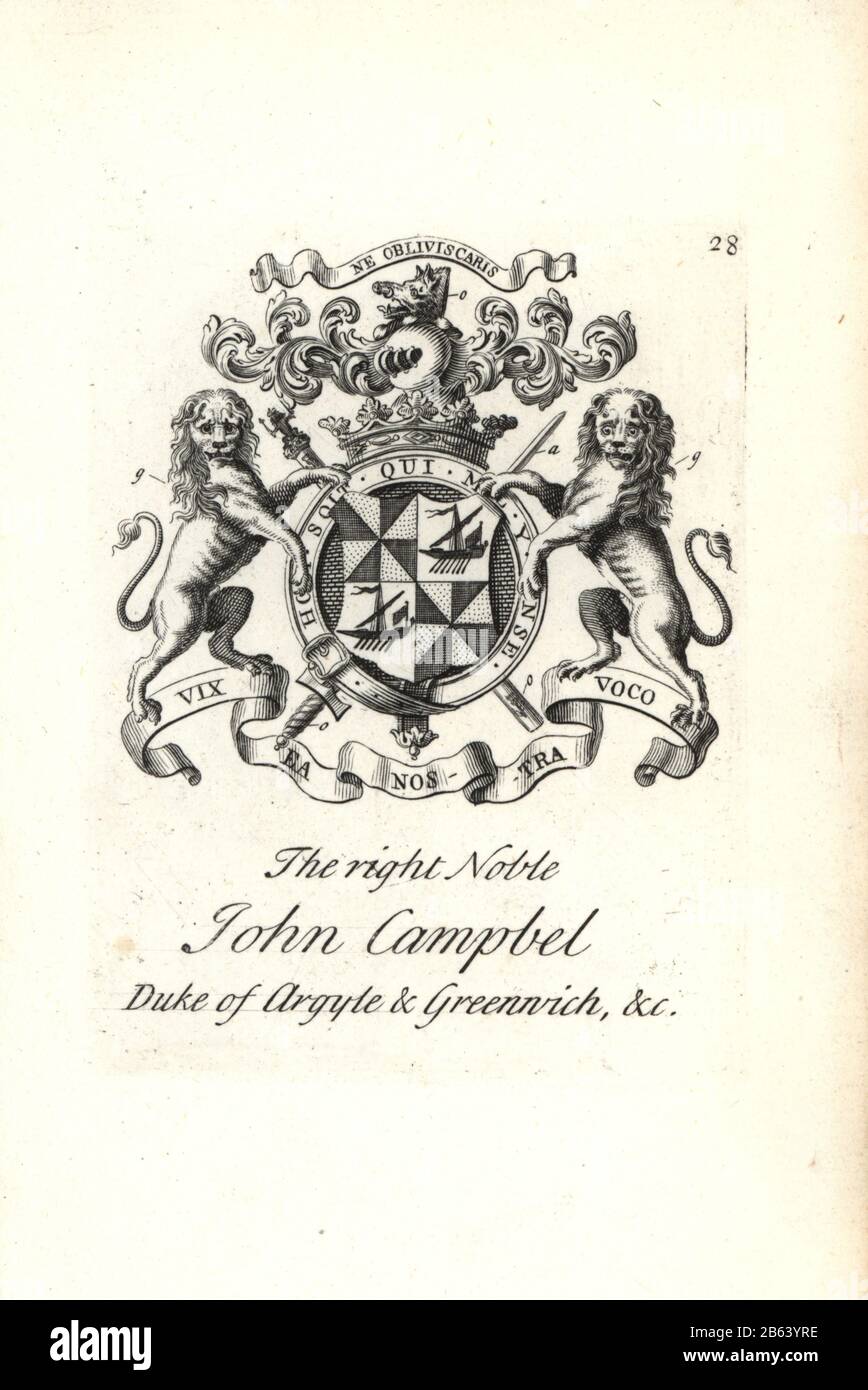 28
NE OBLIVISCARIS
g
o
a
g
QUI
NSE
VIX
VOCO
o
o
EA
NOS-
-TRA
The right Noble
John Campbel
Duke of Argyle & Greenwich, &c.
alamy
Image ID: 2B63YRE
www.alamy.com